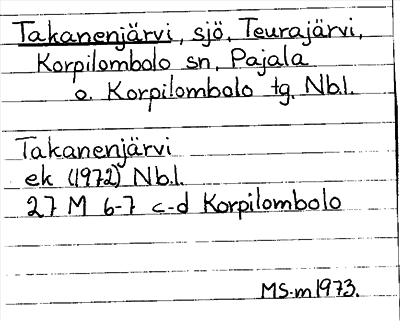 Takanenjärvi, sjö, Teurajärvi,
Korpilombolo sn, Pajala
o. Korpilombolo tg. Nb.l.
Takanenjärvi
ek (1972) Nb.l.
27 M 6-7 c-d Korpilombolo
MS.m 1973.